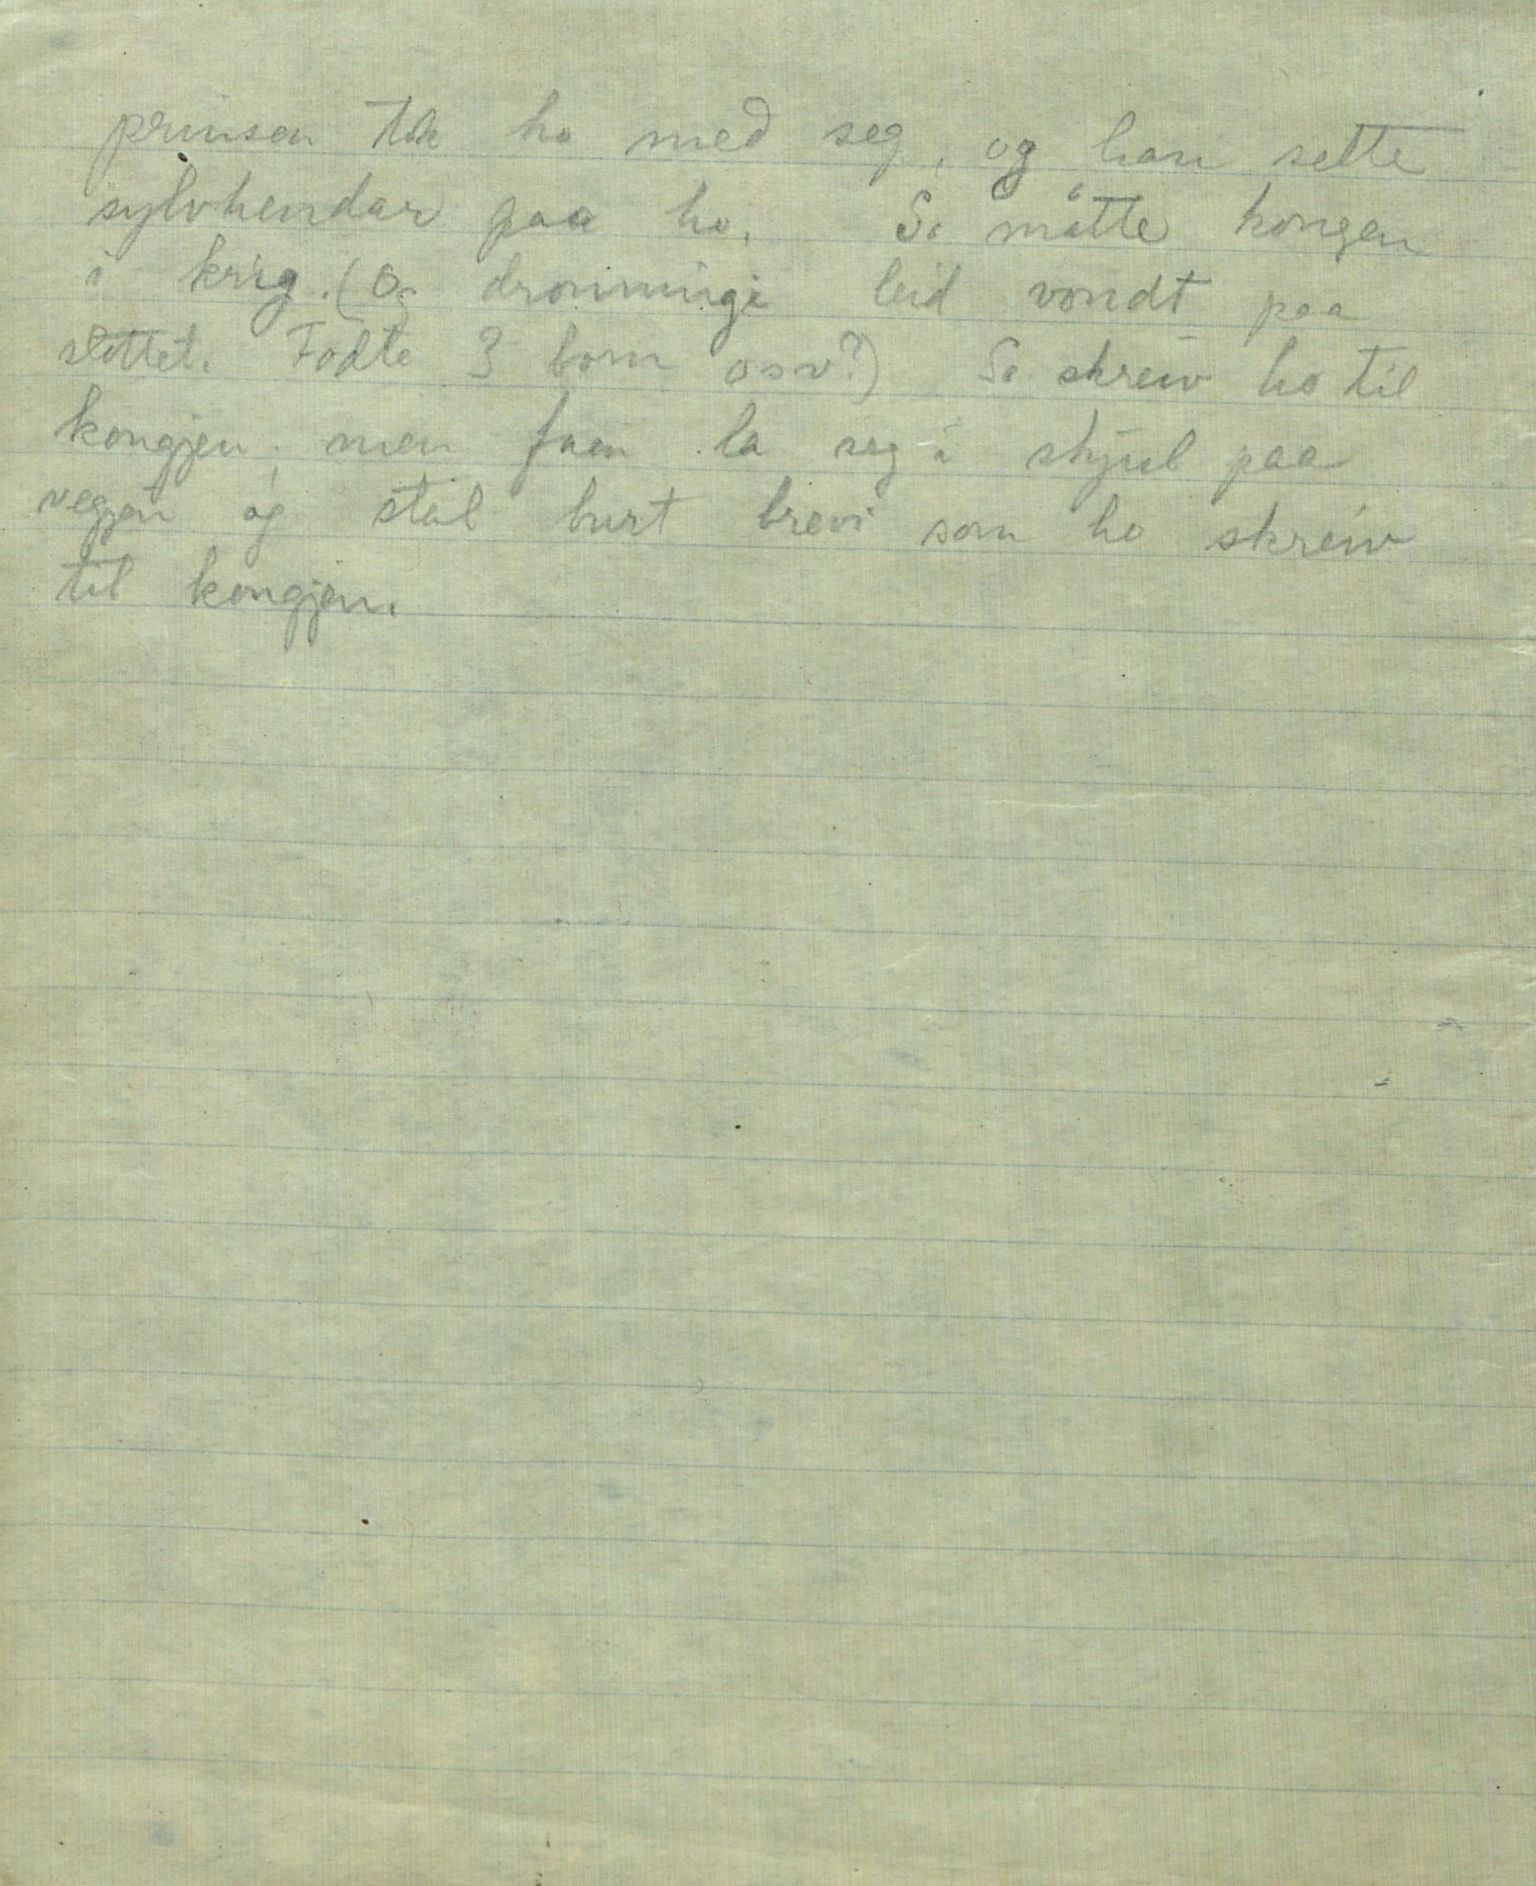 prinsen tok ho med seg, og han sette
sylvhendar paa ho. So måtte kongen
i krig. (Og dronningi leid vondt paa
slottet. Fødte 3 born osv?) So skreiv ho til
kongjen, men faen la seg i skjul paa
vegjen og stal burt brevi som ho skreiv
til kongjen.